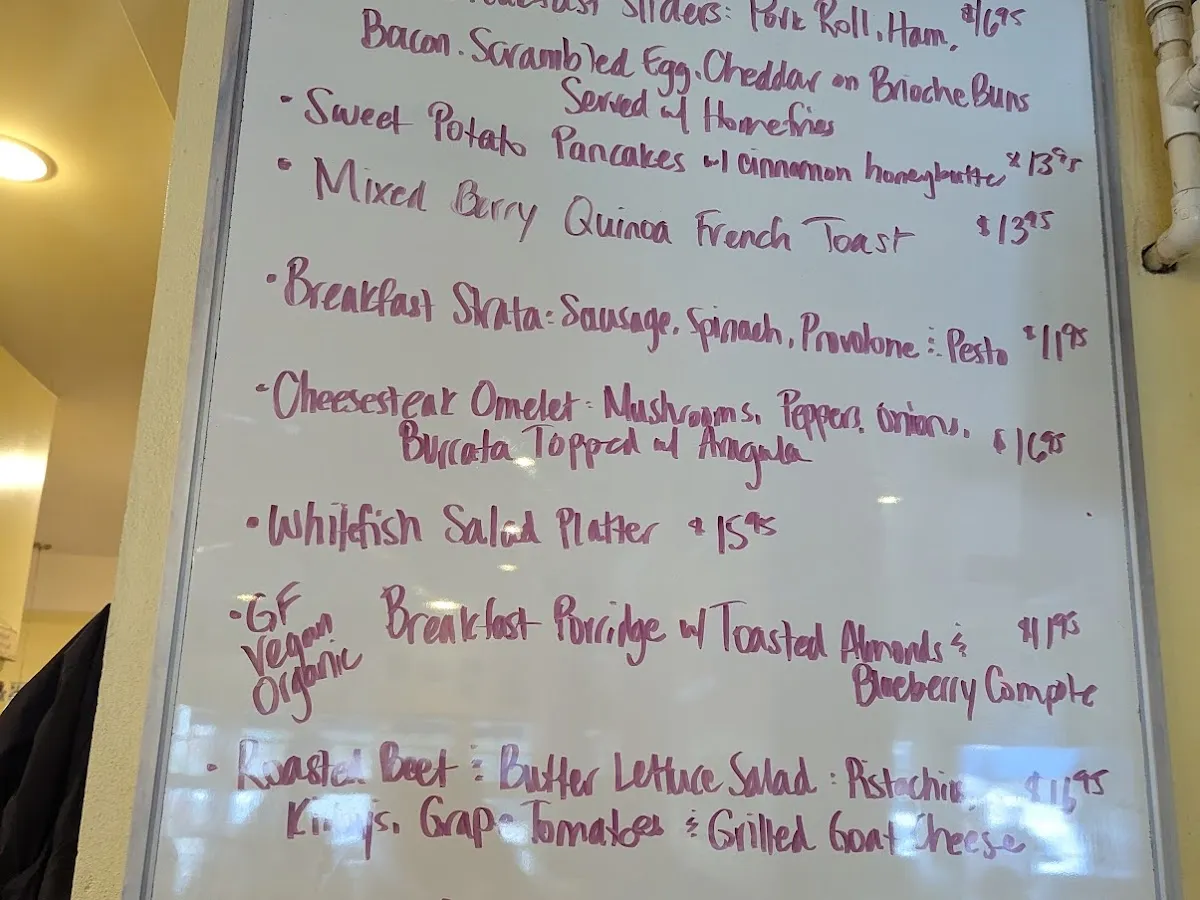 Sliders: Pork Roll, Ham, $16.95
Bacon. Scrambled Egg. Cheddar on Brioche Buns
Served w/ Homefries
• Sweet Potato Pancakes w/ cinnamon honeybutter $13.95
• Mixed Berry Quinoa French Toast $13.95
• Breakfast Strata: Sausage, Spinach, Provolone & Pesto $11.95
• Cheesesteak Omelet: Mushrooms, Peppers, Onions,
Burrata Topped w/ Arugula $16.95
• Whitefish Salad Platter $15.95
• GF Vegan Organic Breakfast Porridge w/ Toasted Almonds &
Blueberry Compote
• Roasted Beet & Butter Lettuce Salad: Pistachio,
Grape Tomatoes & Grilled Goat Cheese